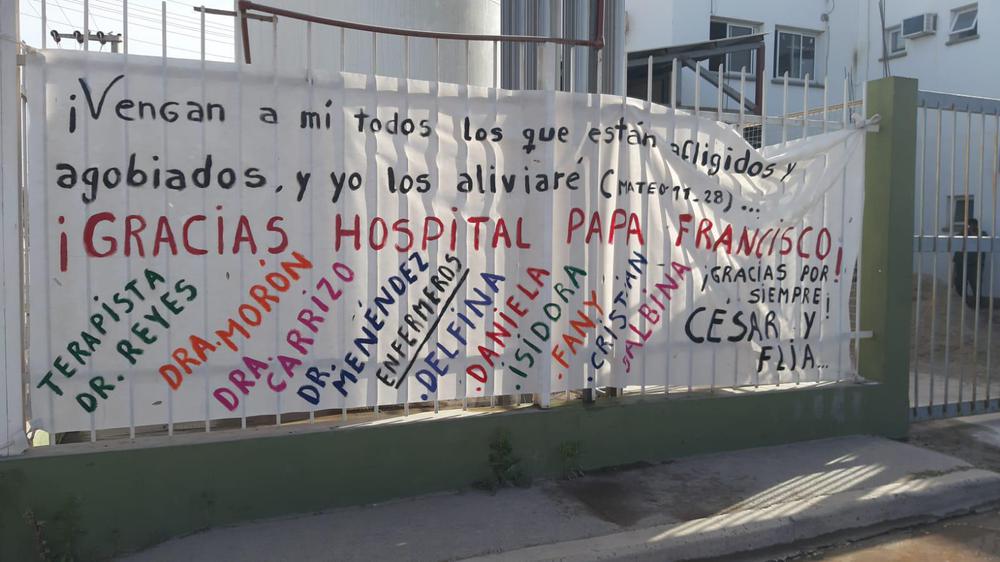 ¡VENGAN a mí todos los que están afligidos y
agobiados, y yo los aliviaré (MATEO 11-28)...
¡GRACIAS HOSPITAL PAPA FRANCISCO!
TERAPISTA
DR. REYES
DRA. MORÓN
DRA.
CARRIZO
DR.
MENÉNDEZ
ENFERMEROS
.DELFINA
.DANIELA
.ISIDORA
.FANY
.CRISTIAN
.ALBINA
¡GRACIAS POR
SIEMPRE!
CÉSAR Y
FLIA...